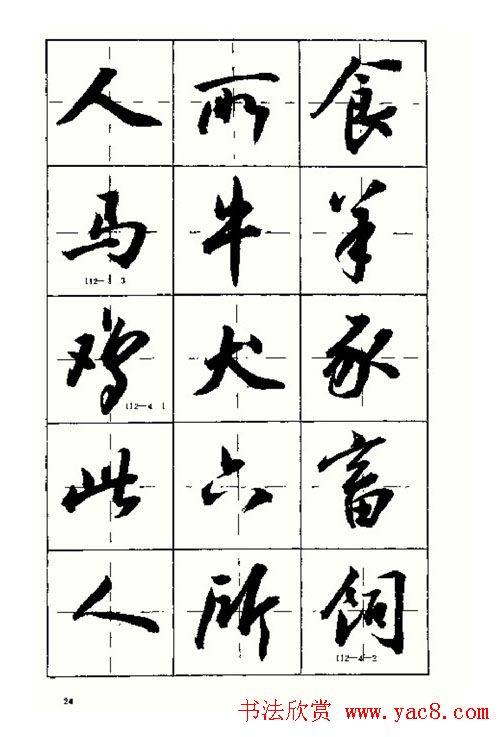 人所食
马牛羊
112-3 3
鸡犬豕
112-4 1
此六畜
人所饲
112-4-2
24
书法欣赏 www.yac8.com